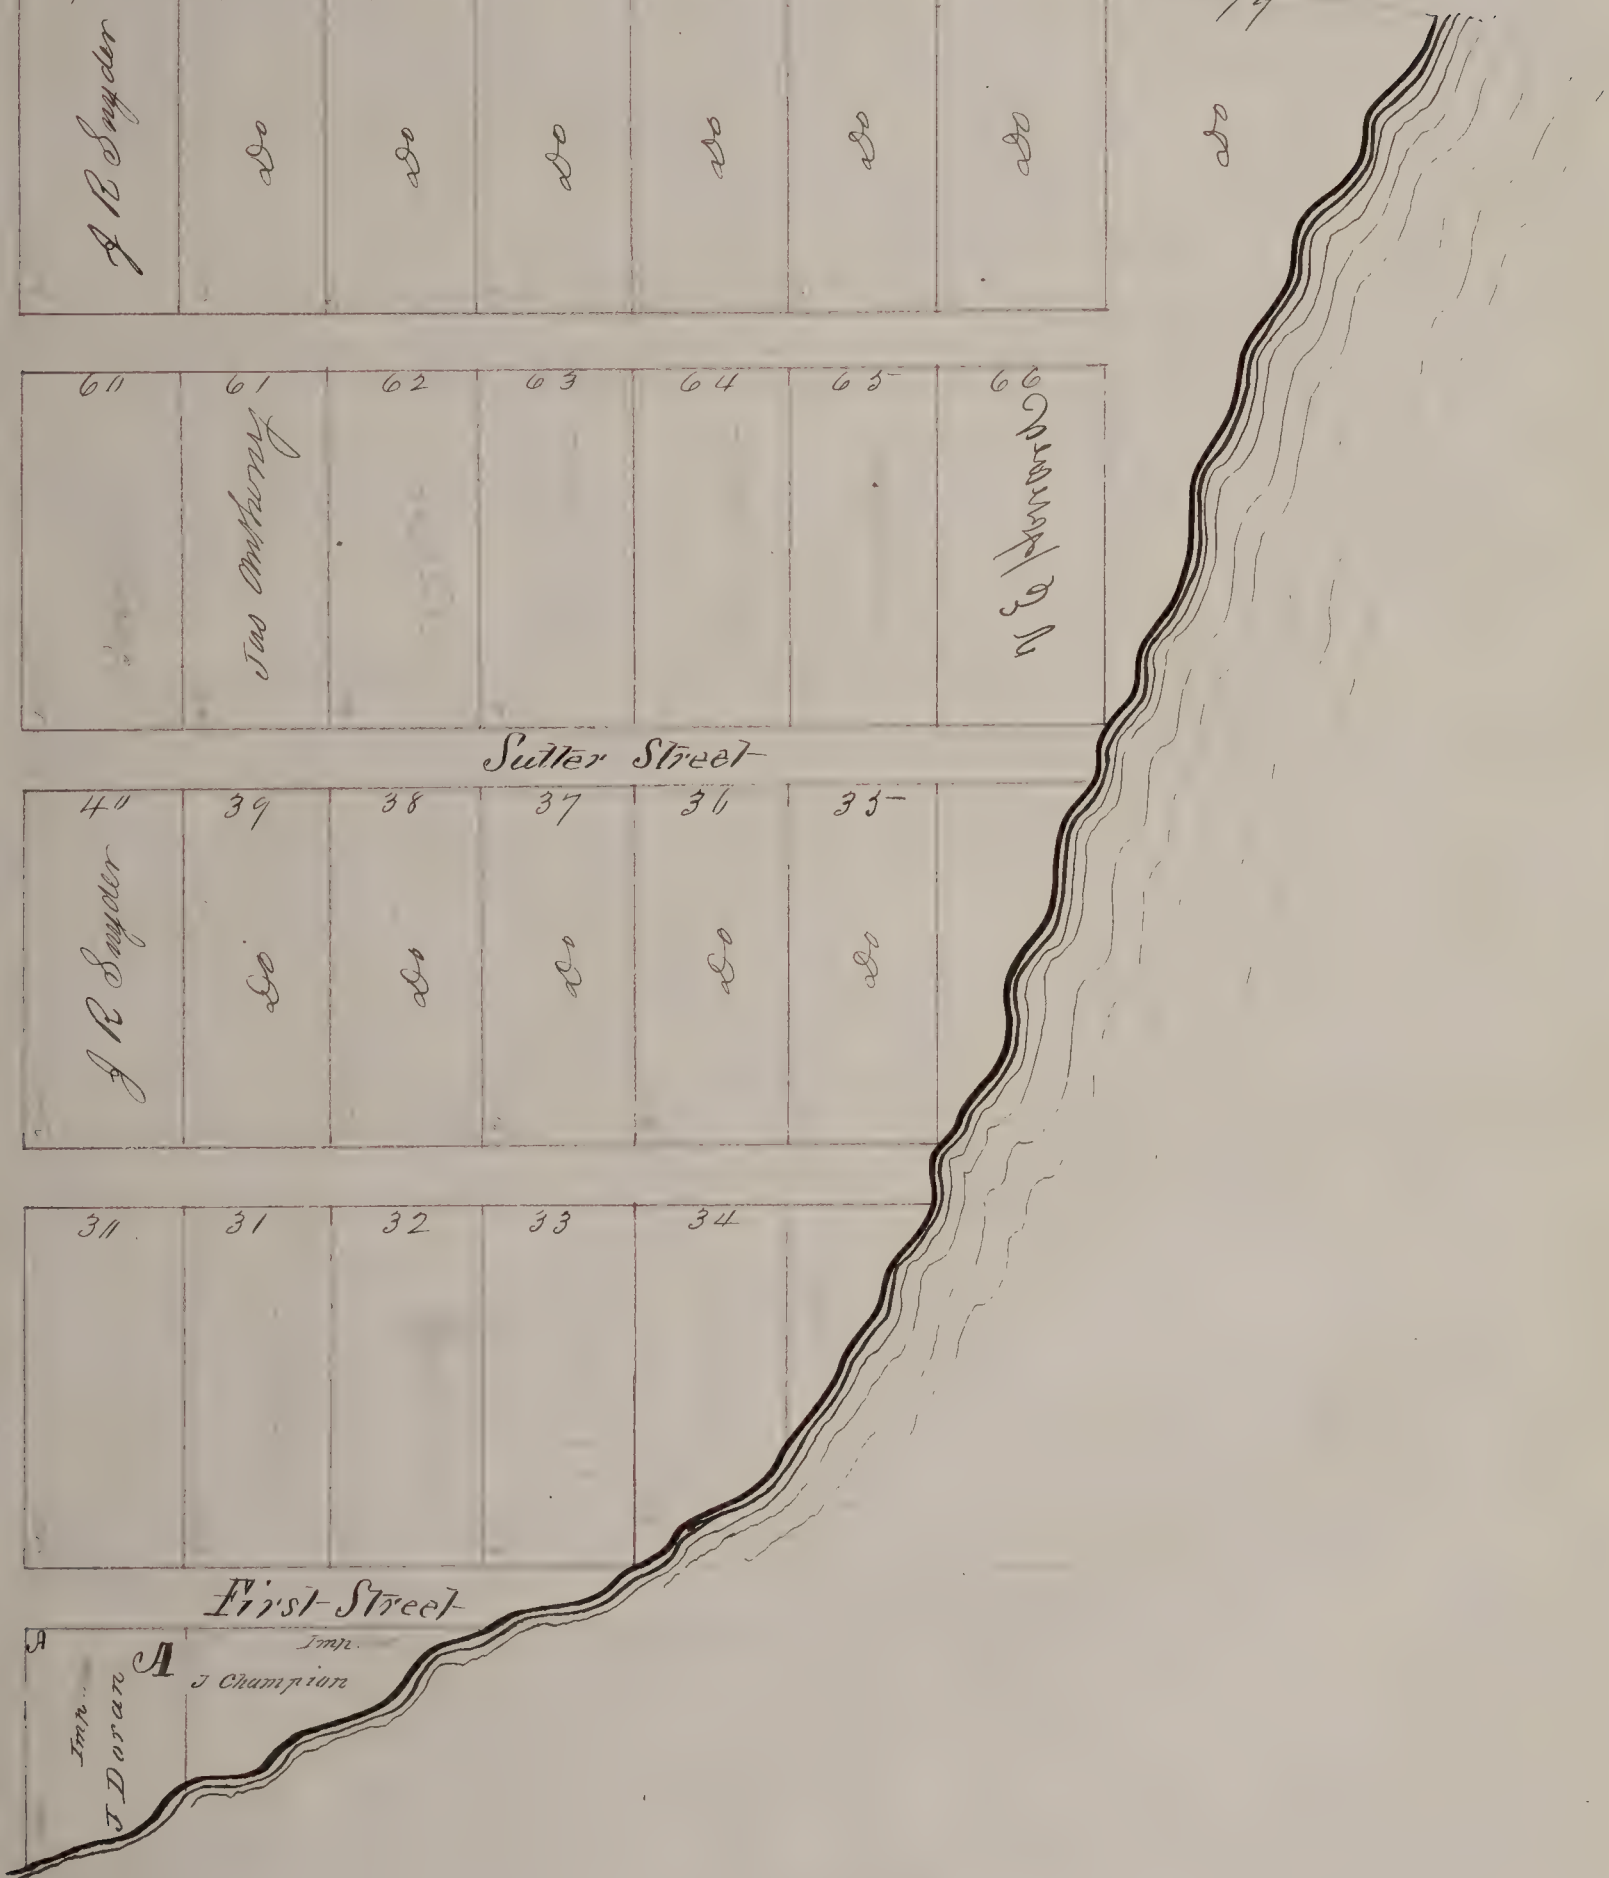 J R Snyder
Do
Do
Do
Do
Do
Do
Do
60 61 62 63 64 65 66
Jas Anthony
Sutter Street
40 39 38 37 36 35
J R Snyder
Do
Do
Do
Do
Do
30 31 32 33 34
First Street
A
A
Imp.
J Champion
Imp.
J Doran